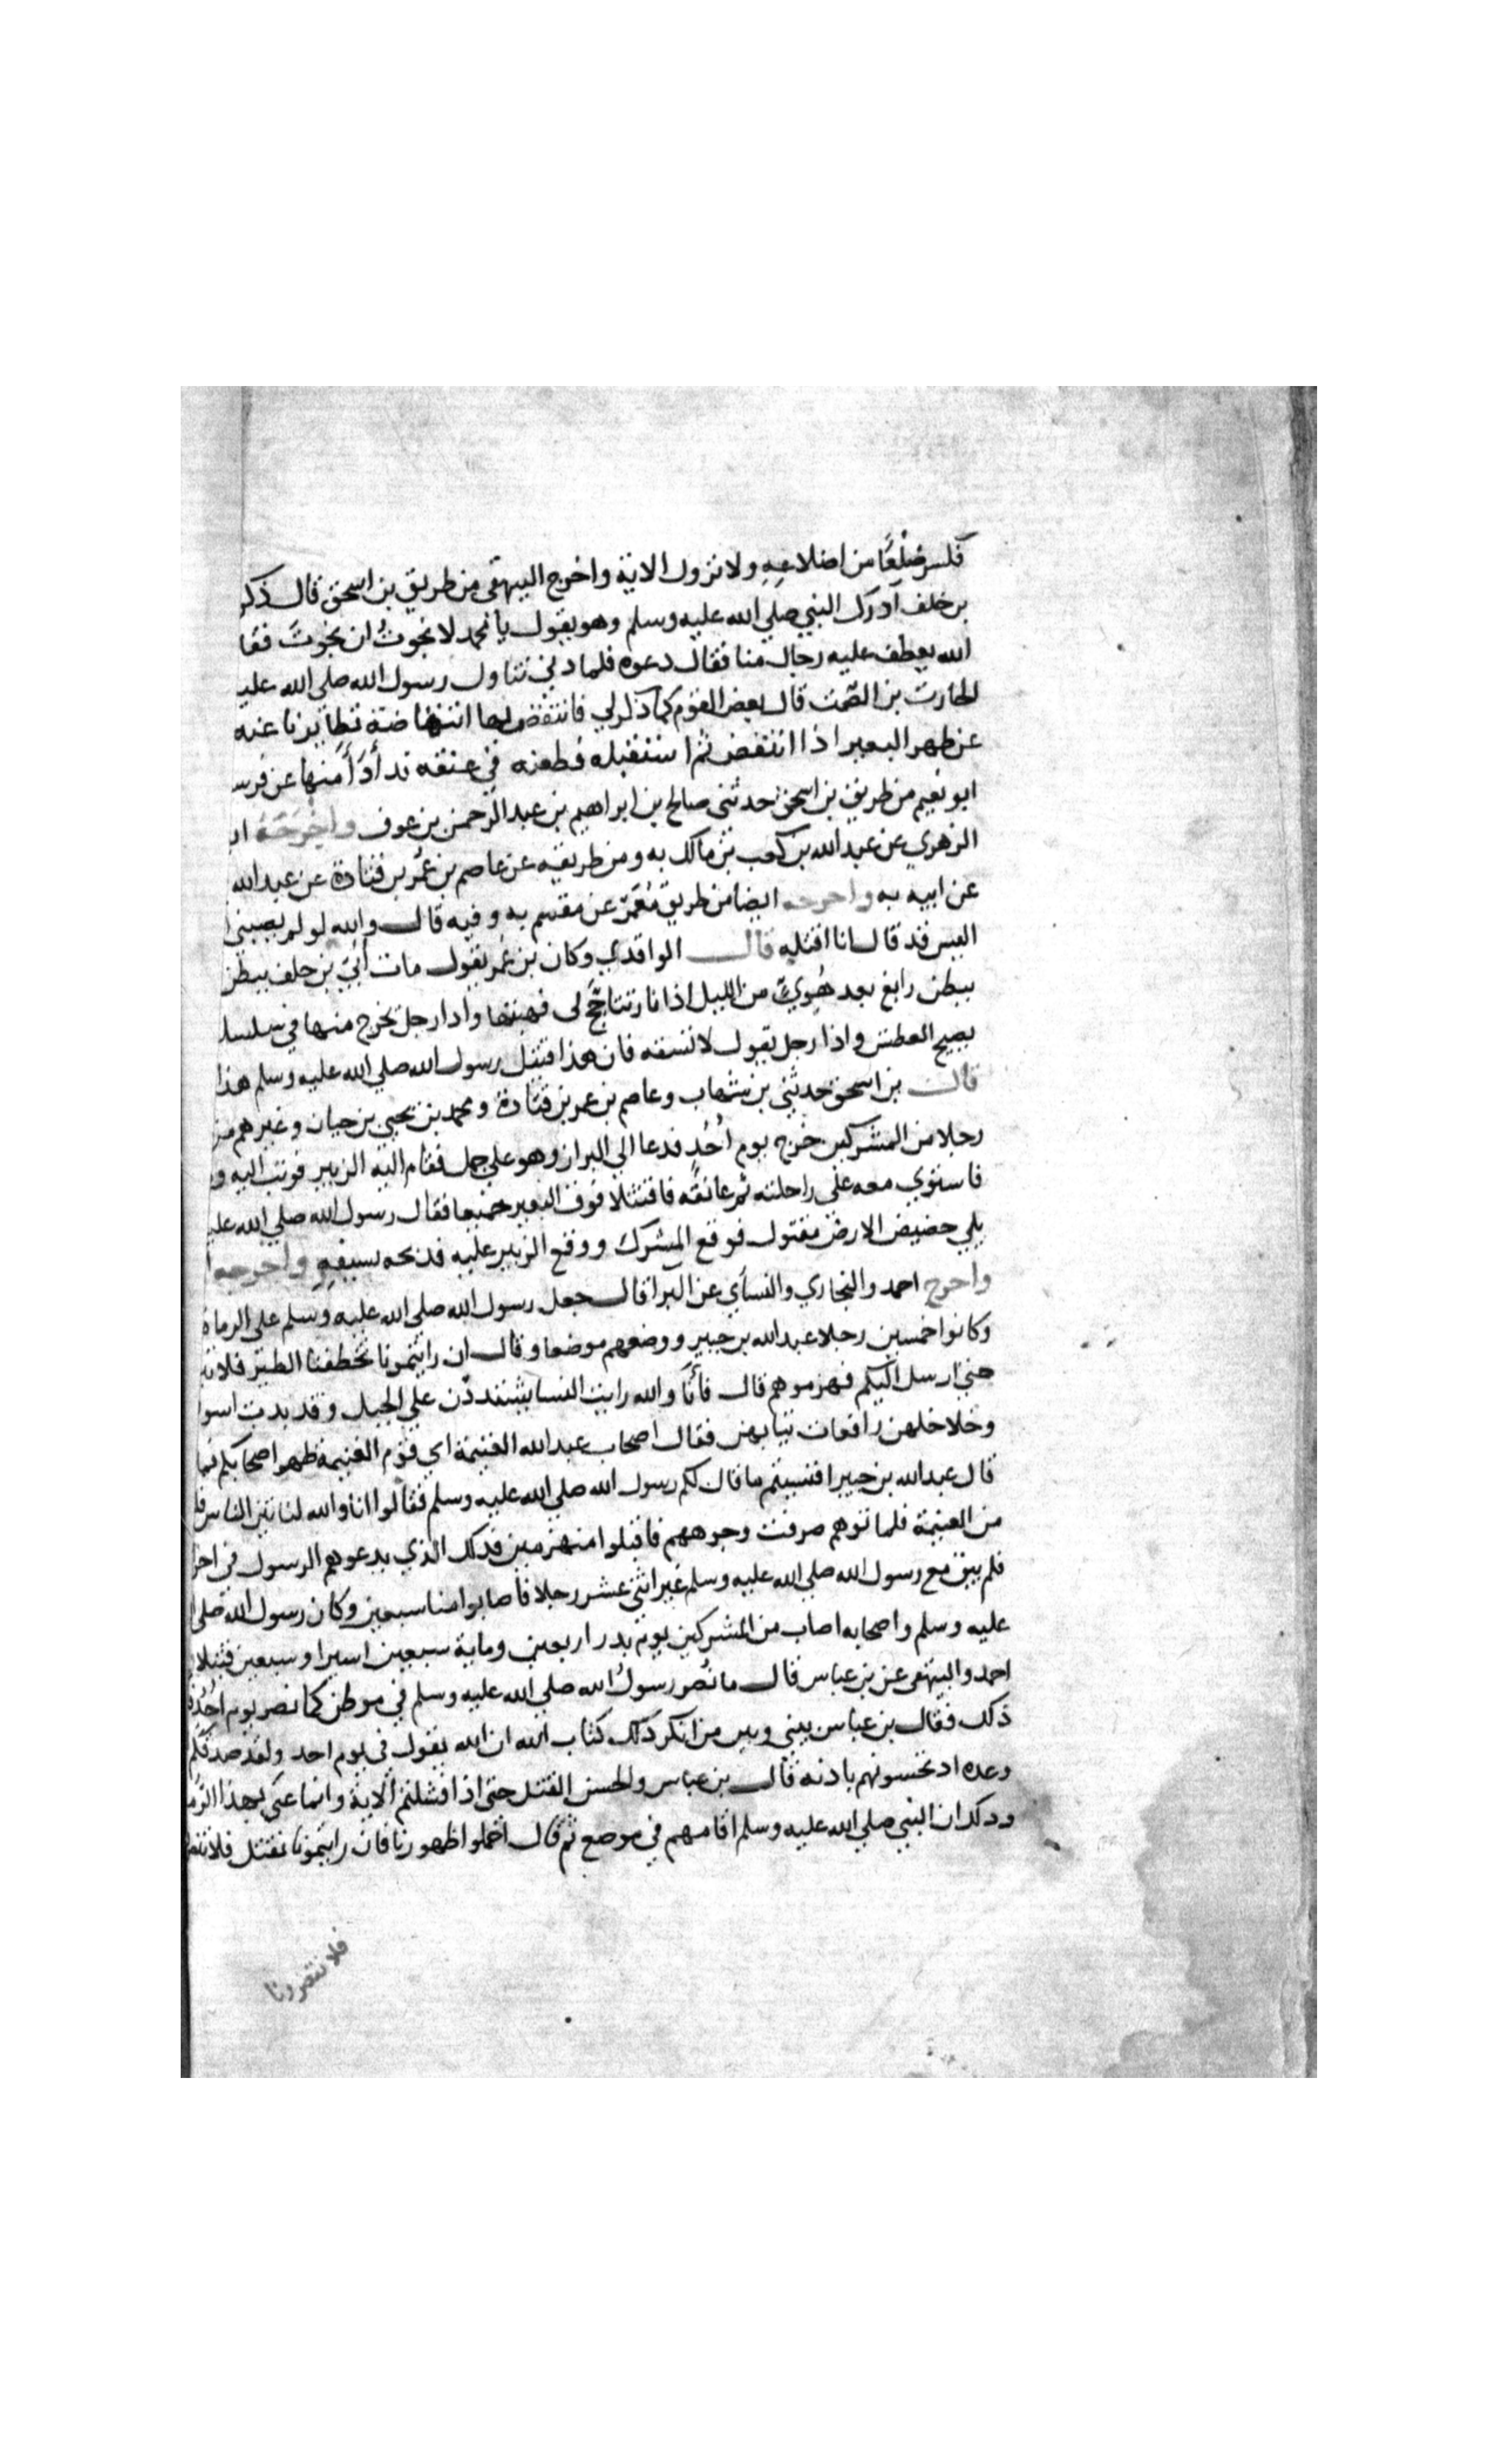 فكسر ضِلْعًا من اضلاعِهِ ولا نزول الاية واخرج البيهقي من طريق بن اسحق قال ذكر
بن خلف ادرك النبي صلي الله عليه وسلم وهو يقول يا محمد لا نجوتُ ان نجوتَ فقا
الله يعطف عليه رجال منا فقال دعوه فلما دني تناول رسول الله صلي الله عليه
الحارث بن الصّمت قال بعض القوم كما ذكر لي فانتفض بها انتفاضة تطايرنا عنه
عن ظهر البعير اذا انتفض ثم استقبله فطعنه في عنقه تدأدَأَ منها عن فرسه
ابو نعيم من طريق بن اسحق حدثني صالح بن ابراهيم بن عبد الرحمن بن عوف واخرجه
الزهري عن عبد الله بن كعب بن مالك به ومن طريقه عن عاصم بن عُمر بن قتادة عن عبد الله
عن ابيه به واخرجه ايضا من طريق مُعَمّر عن مقسم به وفيه قال والله لو لم يصبني
اليس قد قال انا اقتله قال الواقدي وكان بن عُمر يقول مات أُبَيّ بن خلف ببطن
ببطن رابغ بعد هُويّ من الليل اذا نار تتاجّج لي فهبتها واذا رجل يخرج منها في سلسل
يصيح العطش واذا رجل يقول لا تسقه فان هذا قتيل رسول الله صلي الله عليه وسلم هذا
قال بن اسحق حدثني بن شهاب وعاصم بن عمر بن قتادة ومحمد بن يحيي بن حيان وغيرهم من
رجلا من المشركين خرج يوم اُحُدٍ فدعا الي البراز وهو علي جمل فقام اليه الزبير فوثب اليه
فاستوي معه علي راحلته ثم عانقه فاقتتلا فوق البعير جميعا فقال رسول الله صلي الله عليه
يلي حضيض الارض مقتول فوقع المشرك ووقع الزبير عليه فذبحه بسيفِهِ واخرجه
واخرج احمد والبخاري والنسأي عن البرا قال جعل رسول الله صلي الله عليه وسلم علي الرماة
وكانوا خمسين رجلا عبد الله بن جبير ووضعهم موضعا وقال ان رايتمونا تخطفنا الطير فلا
حتي ارسل اليكم فهزموهم قال فأنا والله رايت النسا يشتددن علي الجبل وقد بدت اسوا
وخلاخلهن رافعات ثيابهن فقال اصحاب عبد الله الغنيمة اي قوم الغنيمة ظهر اصحابكم فما
قال عبد الله بن جبير افنسيتم ما قال لكم رسول الله صلي الله عليه وسلم فقالوا انا والله لناتين الناس فل
من الغنيمة فلما اتوهم صرفت وجوههم فاقبلوا منهزمين فذلك الذي يدعوهم الرسول في اخرا
فلم يبق مع رسول الله صلي الله عليه وسلم غير اثني عشر رجلا فاصابوا منا سبعين وكان رسول الله صلي ا
عليه وسلم واصحابه اصاب من المشركين يوم بدر اربعين وماية سبعين اسيرا وسبعين قتيلا
احمد والبيهقي عن بن عباس قال ما نُصر رسولُ الله صلي الله عليه وسلم في موطن كما نصر يوم اُحُدٍ
ذلك فقال بن عباس بيني وبين من انكر ذلك كتاب الله ان الله يقول في يوم احد ولقد صدقكم
وعده اذ تحسونهم باذنه قال بن عباس والحسن القتل حتي اذا فشلتم الاية وانما عني بهذا الرُّم
وذلك ان النبي صلي الله عليه وسلم اقامهم في موضع ثم قال احموا ظهورنا فان رايتمونا نقتل فلا
فلا تنصرونا